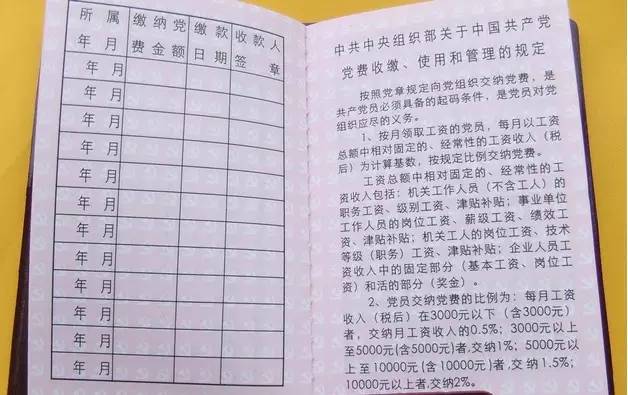 所属年月 缴纳党费金额 缴款日期 收款人签章
年 月
年 月
年 月
年 月
年 月
年 月
年 月
年 月
年 月
年 月
年 月
年 月
中共中央组织部关于中国共产党
党费收缴、使用和管理的规定
按照党章规定向党组织交纳党费，是
共产党员必须具备的起码条件，是党员对党
组织应尽的义务。
1、按月领取工资的党员，每月以工资
总额中相对固定的、经常性的工资收入（税
后）为计算基数，按规定比例交纳党费。
工资总额中相对固定的、经常性的工
资收入包括：机关工作人员（不含工人）的
职务工资、级别工资、津贴补贴；事业单位
工作人员的岗位工资、薪级工资、绩效工
资、津贴补贴；机关工人的岗位工资、技术
等级（职务）工资、津贴补贴；企业人员工
资收入中的固定部分（基本工资、岗位工
资）和活的部分（奖金）。
2、党员交纳党费的比例为：每月工资
收入（税后）在3000元以下（含3000元）
者，交纳月工资收入的0.5%；3000元以上
至5000元(含5000元)者,交纳1%；5000元以
上至10000元(含10000元)者,交纳1.5%；
10000元以上者,交纳2%。